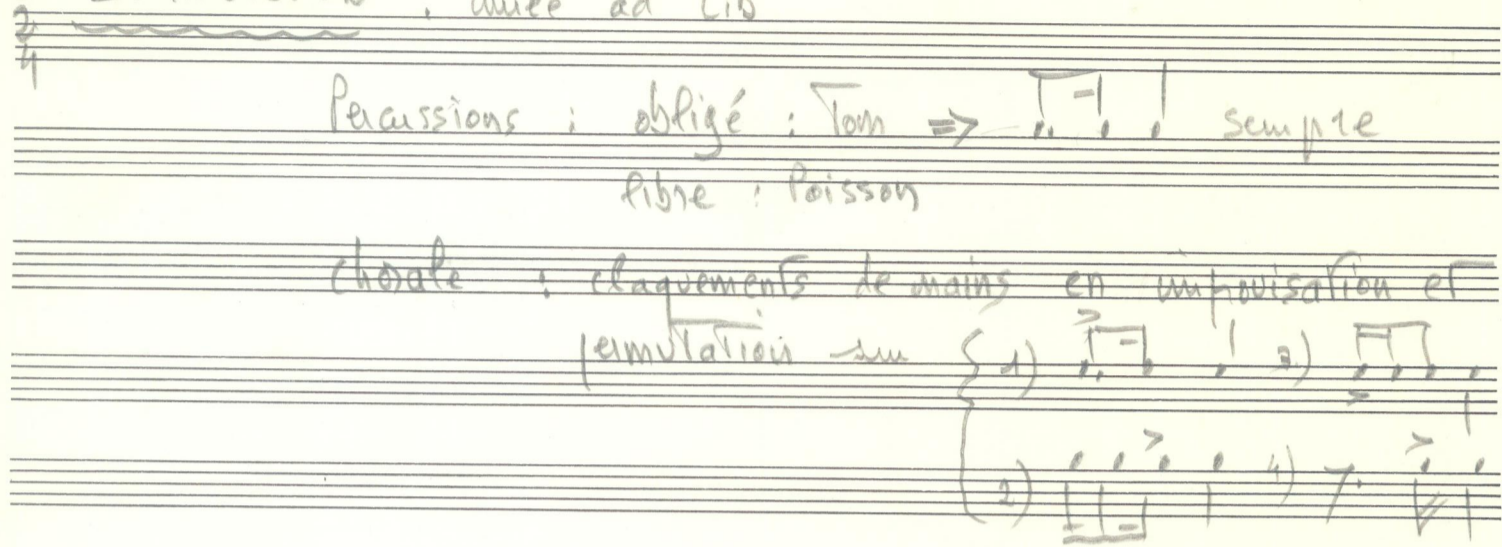 : durée ad lib
2/4
Percussions : obligé : Tom => sempre
libre : Poisson
chorale : claquements de mains en improvisation et
permutation sur { 1) 3)
2) 4)